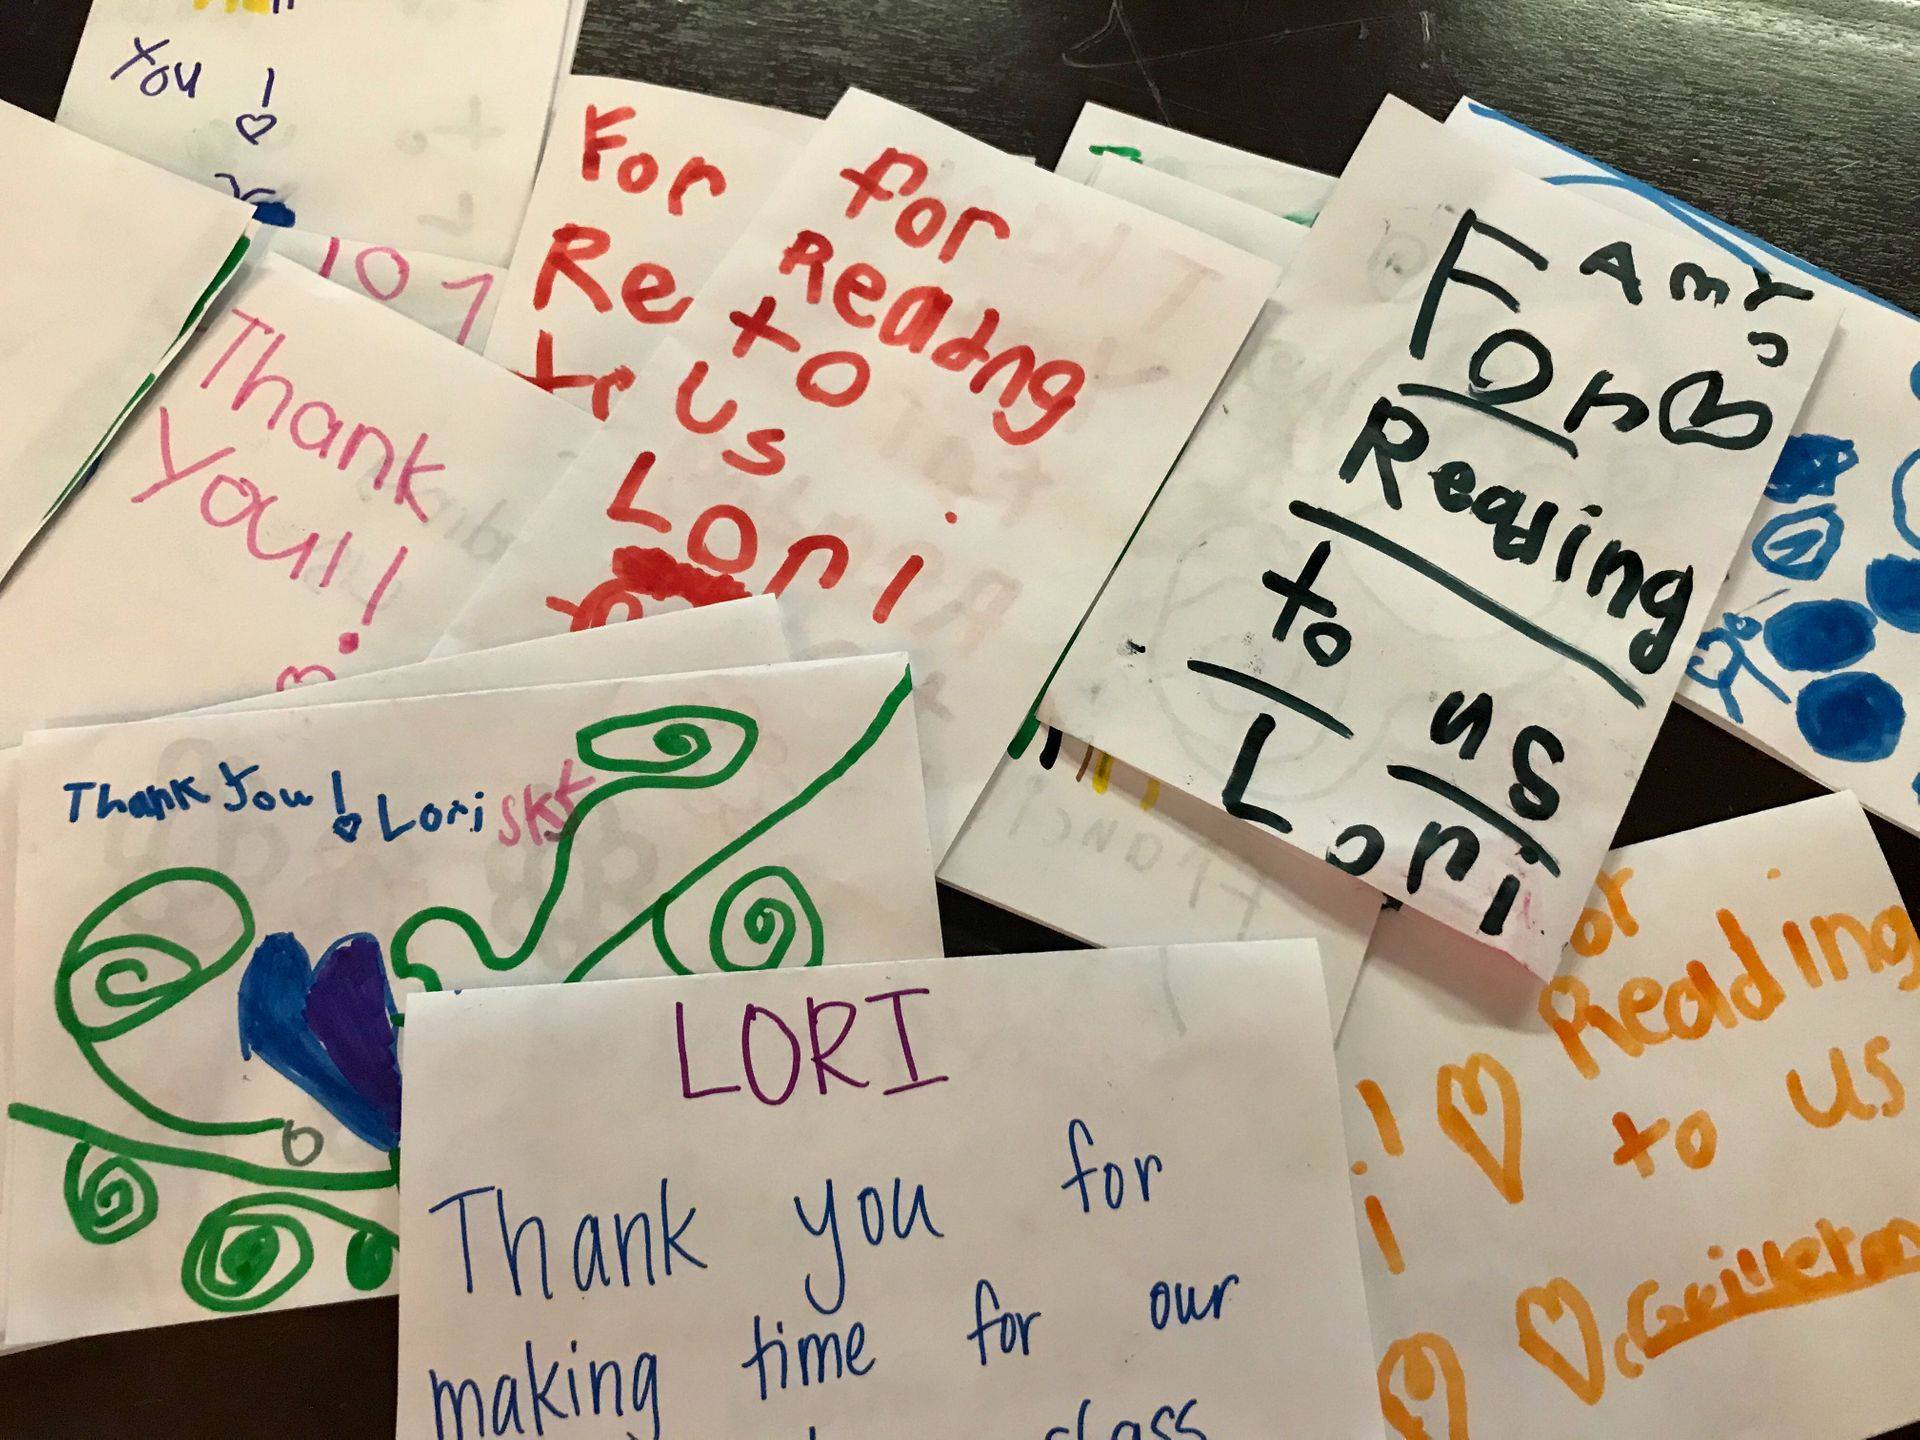 You !
For
Re
for
Reading
to
us
Lori
Amy
For
Reading
to us
Lori
Thank
you!!
Thank you! Lori
LORI
Thank you for
making time for our
class
Reading
to us